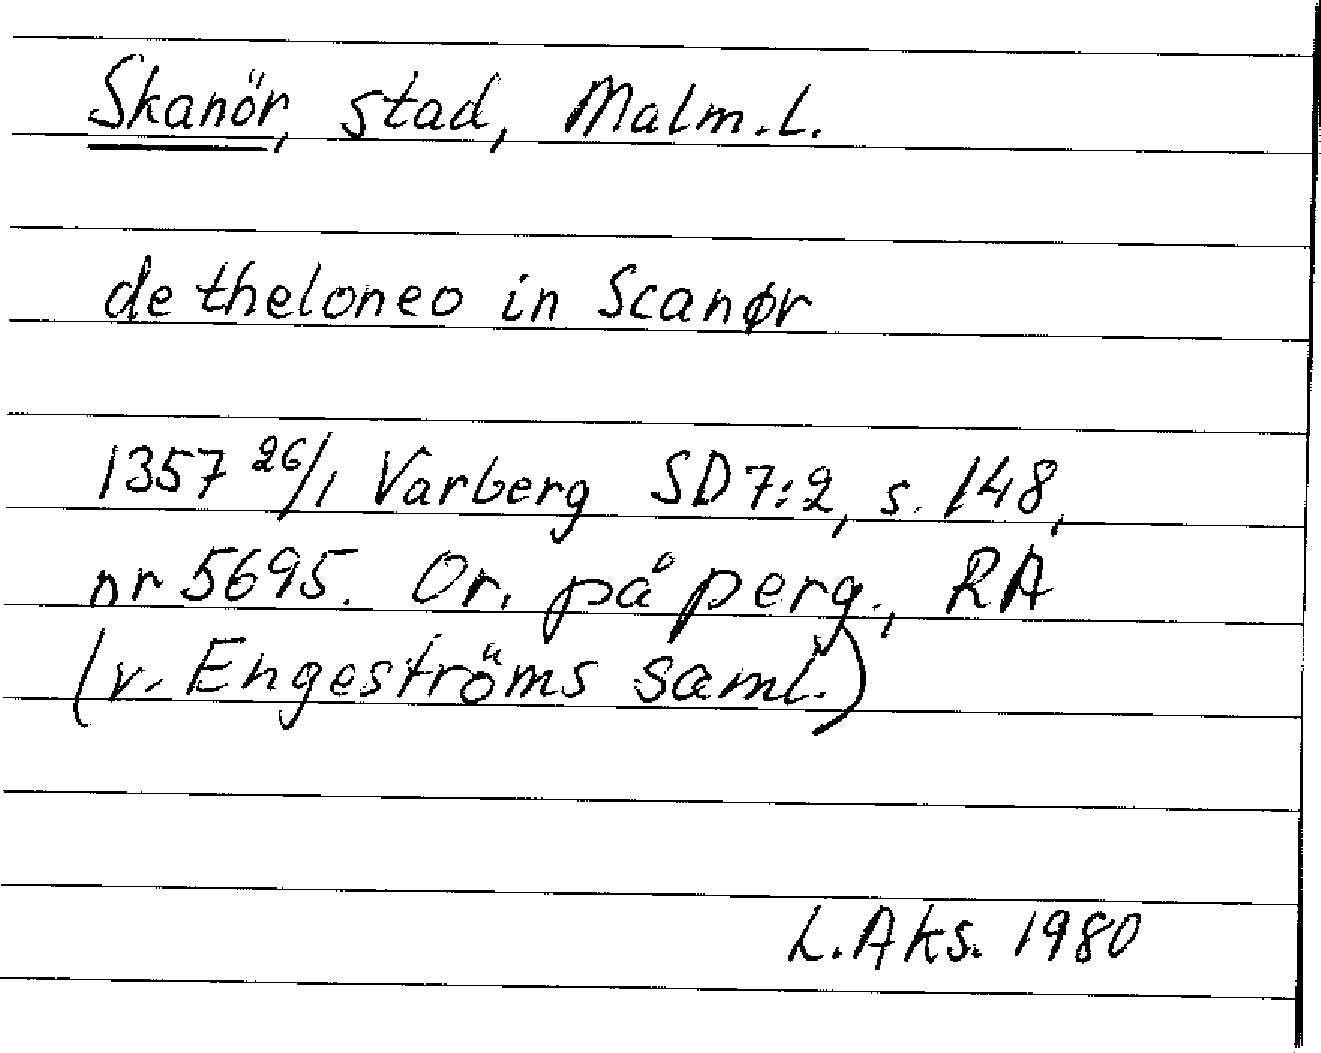 Skanör, stad, Malm.L.
de theloneo in Scanør
1357 26/1 Varberg SD 7:2, s. 148,
nr 5695. Or. på perg., RA
(v. Engeströms saml.)
L.Aks. 1980